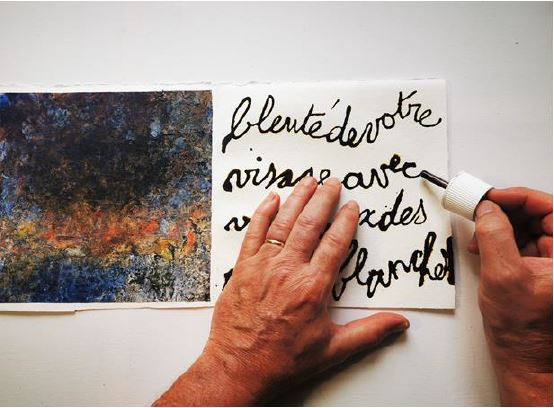 bleuté de votre
visage avec
des
blanches